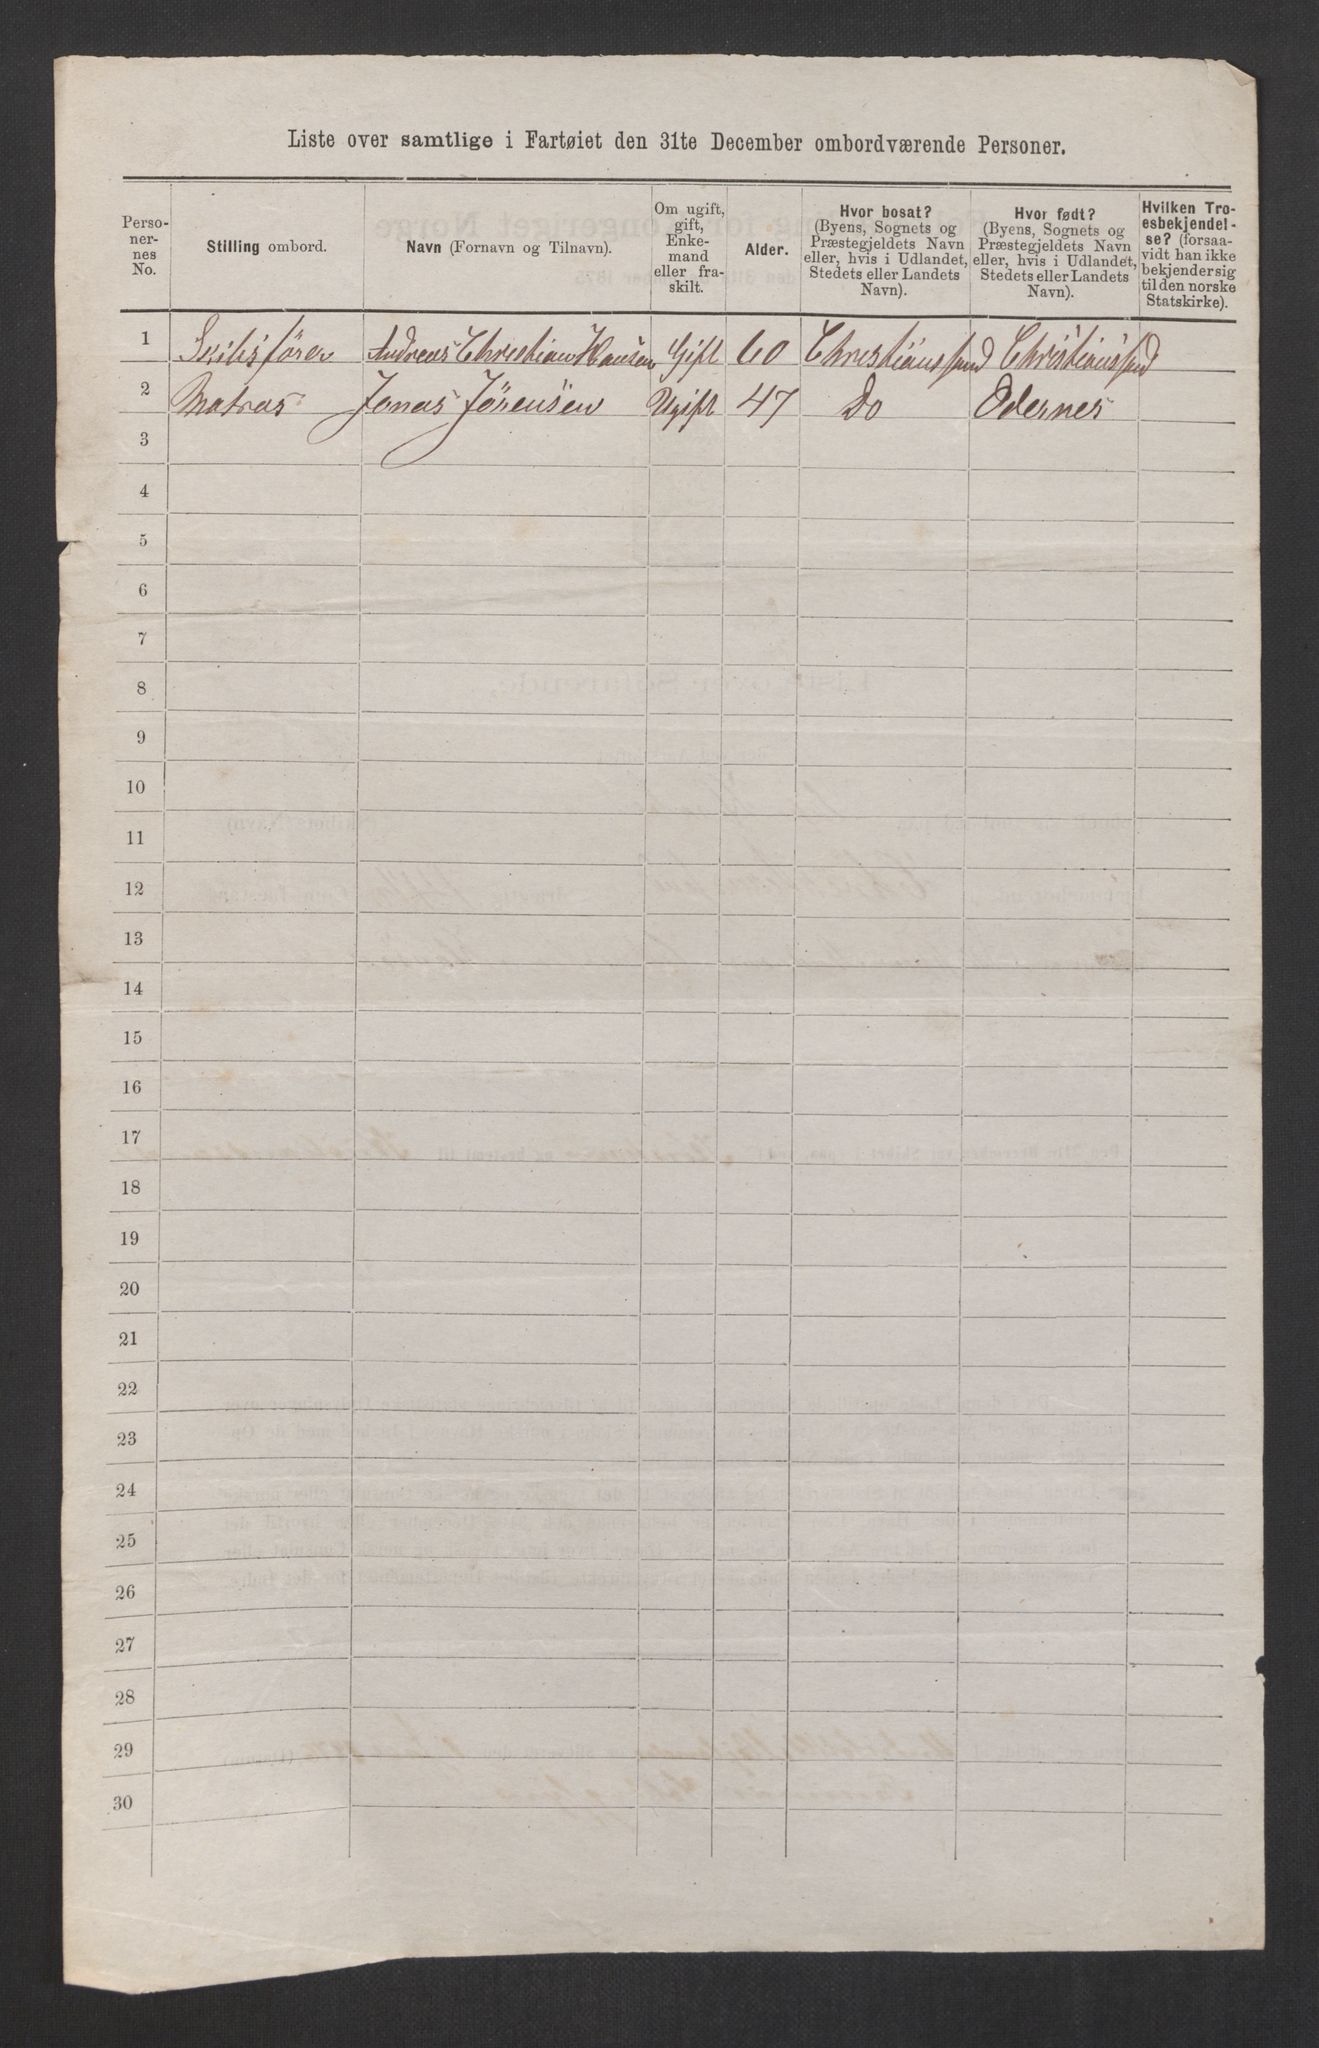 Liste over samtlige i Fartøiet den 31te December ombordværende Personer.
Perso-
ner-
nes
No.
Stilling ombord.
Navn (Fornavn og Tilnavn).
Om ugift,
gift,
Enke-
mand
eller fra-
skilt.
Alder.
Hvor bosat?
(Byens, Sognets og
Præstegjeldets Navn
eller, hvis i Udlandet,
Stedets eller Landets
Navn).
Hvor født?
(Byens, Sognets og
Præstegjeldets Navn
eller, hvis i Udlandet,
Stedets eller Landets
Navn).
Hvilken Tro-
esbekjendel-
se? (forsaa-
vidt han ikke
bekjender sig
til den norske
Statskirke).
1 Skibsförer Andreas Christian Hansen Gift 60 Christianssand Christianssand
2 Matros Jonas Jörensen Ugift 47 Do Odernes
3
4
5
6
7
8
9
10
11
12
13
14
15
16
17
18
19
20
21
22
23
24
25
26
27
28
29
30